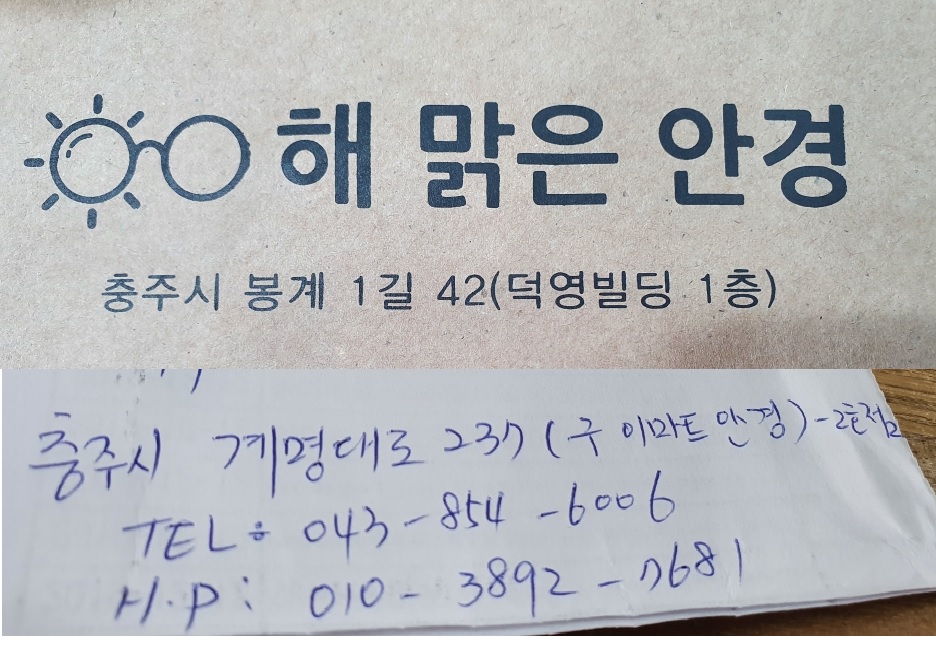 해 맑은 안경
충주시 봉계 1길 42(덕영빌딩 1층)
충주시 계명대로 237 (구 이마트 안경)-2호점
TEL: 043-854-6006
H.P: 010-3892-7681